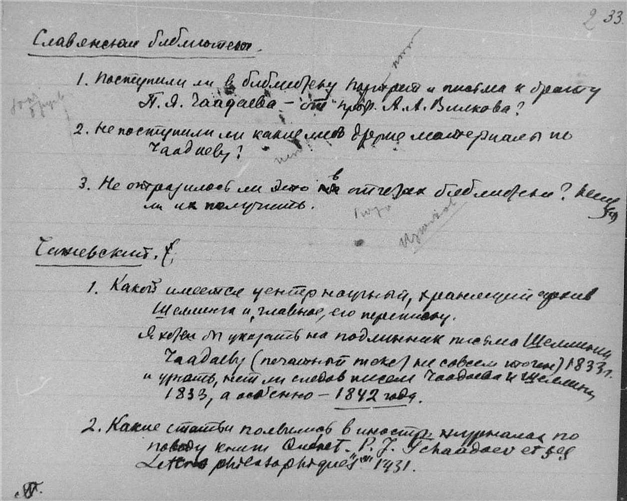 2 33.
Славянская библиотека.
1. Поступили ли в библиотеку портрет и письма к брату
П. Я. Чаадаева – от проф. А. А. Волкова?
нет
2. Не поступили ли какие либо другие материалы по
Чаадаеву?
нет
3. Не отразилось ли это в отчетах библиотеки?
ли их получить.
Чижевский.
1. Какой имеется центр научный, хранящий архив
Шеллинга и, главное, его переписку.
Я хотел бы указать на подлинник письма Шеллинга
Чаадаеву (печатный текст не совсем точен) 1833 г.
и узнать, нет ли следов писем Чаадаева и Шеллинга
1833, а особенно – 1842 года.
2. Какие статьи появились в иностр. журналах по
поводу книги Quénet. P. J. Tchaadaev et les
Lettres philosophiques 1931.